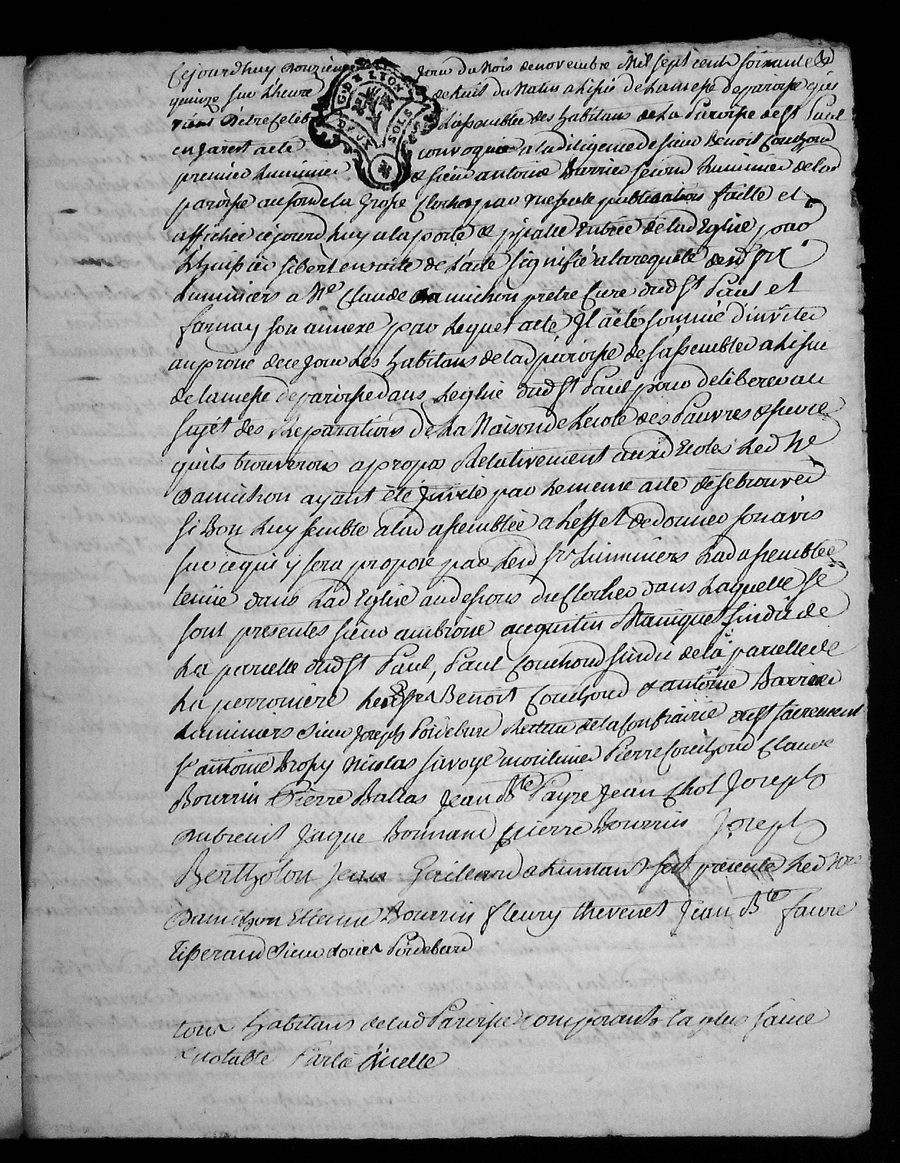 Cejourdhuy douzieme jour du Mois de novembre Mil sept cent soixante &
quinze sur Lheure de huit du Matin a Lissüe de La messe de paroisse qui
vient Detre Celeb L'assemblée des habitans de La Paroisse de St Paul
en Jarest acte convoquée a la diligence de sieur Benoit Couchoud
premier Luminier & sieur antoine Barrier second Luminier de lad
paroisse au son de la Grosse Cloche, par une seule publication faitte et
affichée cejourdhuy a la porte & ppalle Entrée de lad Eglise par
L'huissier sibert ensuite de L'acte signifié a la requete desd Srs
Luminiers a Me Claude Damichon pretre Curé dud St Paul et
farnay son annexe par Lequel acte Il a eté sommé d'inviter
au prone de ce jour Les habitans de lad paroisse de s'assembler a Lissue
de la messe de paroisse dans Leglise dud St Paul pour deliberer au
sujet des Reparations De La Maison de Lecole des Pauvres & sur ce
quils trouveront a propos Relativement auxd Ecoles Led Me
Damichon ayant eté Invité par Le meme acte de se trouver
si Bon Luy semble a lad assemblée a L'effet de donner son avis
sur ce qui y sera proposé par Lesd Srs Luminiers Lad assemblée
tenüe dans Lad Eglise au dessous du Clocher dans Laquelle se
sont presentés sieur ambroise acquitin Maniquet sindic de
La parcelle dud St Paul, Paul Couchoud sindic de la parcelle de
La perroniere Lesd Srs Benoit Couchoud & antoine Barrier
Luminiers sieur Joseph Poidebard Recteur de la Confrairie du St sacrement
Sr antoine Bropy Nicolas savoye Pierre Couchoud Claude
Bourrin Pierre Ballas Jean Bte Payre Jean Chol Joseph
Dubreuil Jaque Bonnand & pierre Bourrin Joseph
Bertholon Jean Guilland a Linstant sest presenté Led Me
Damichon Etienne Bourrin fleury Thevenet Jean Bte favre
tisserand sieur Poidebard
tous habitans de lad Paroisse & composants la plus saine
& notable Partie d'icelle
G. DE LYON
DEUX SOLS